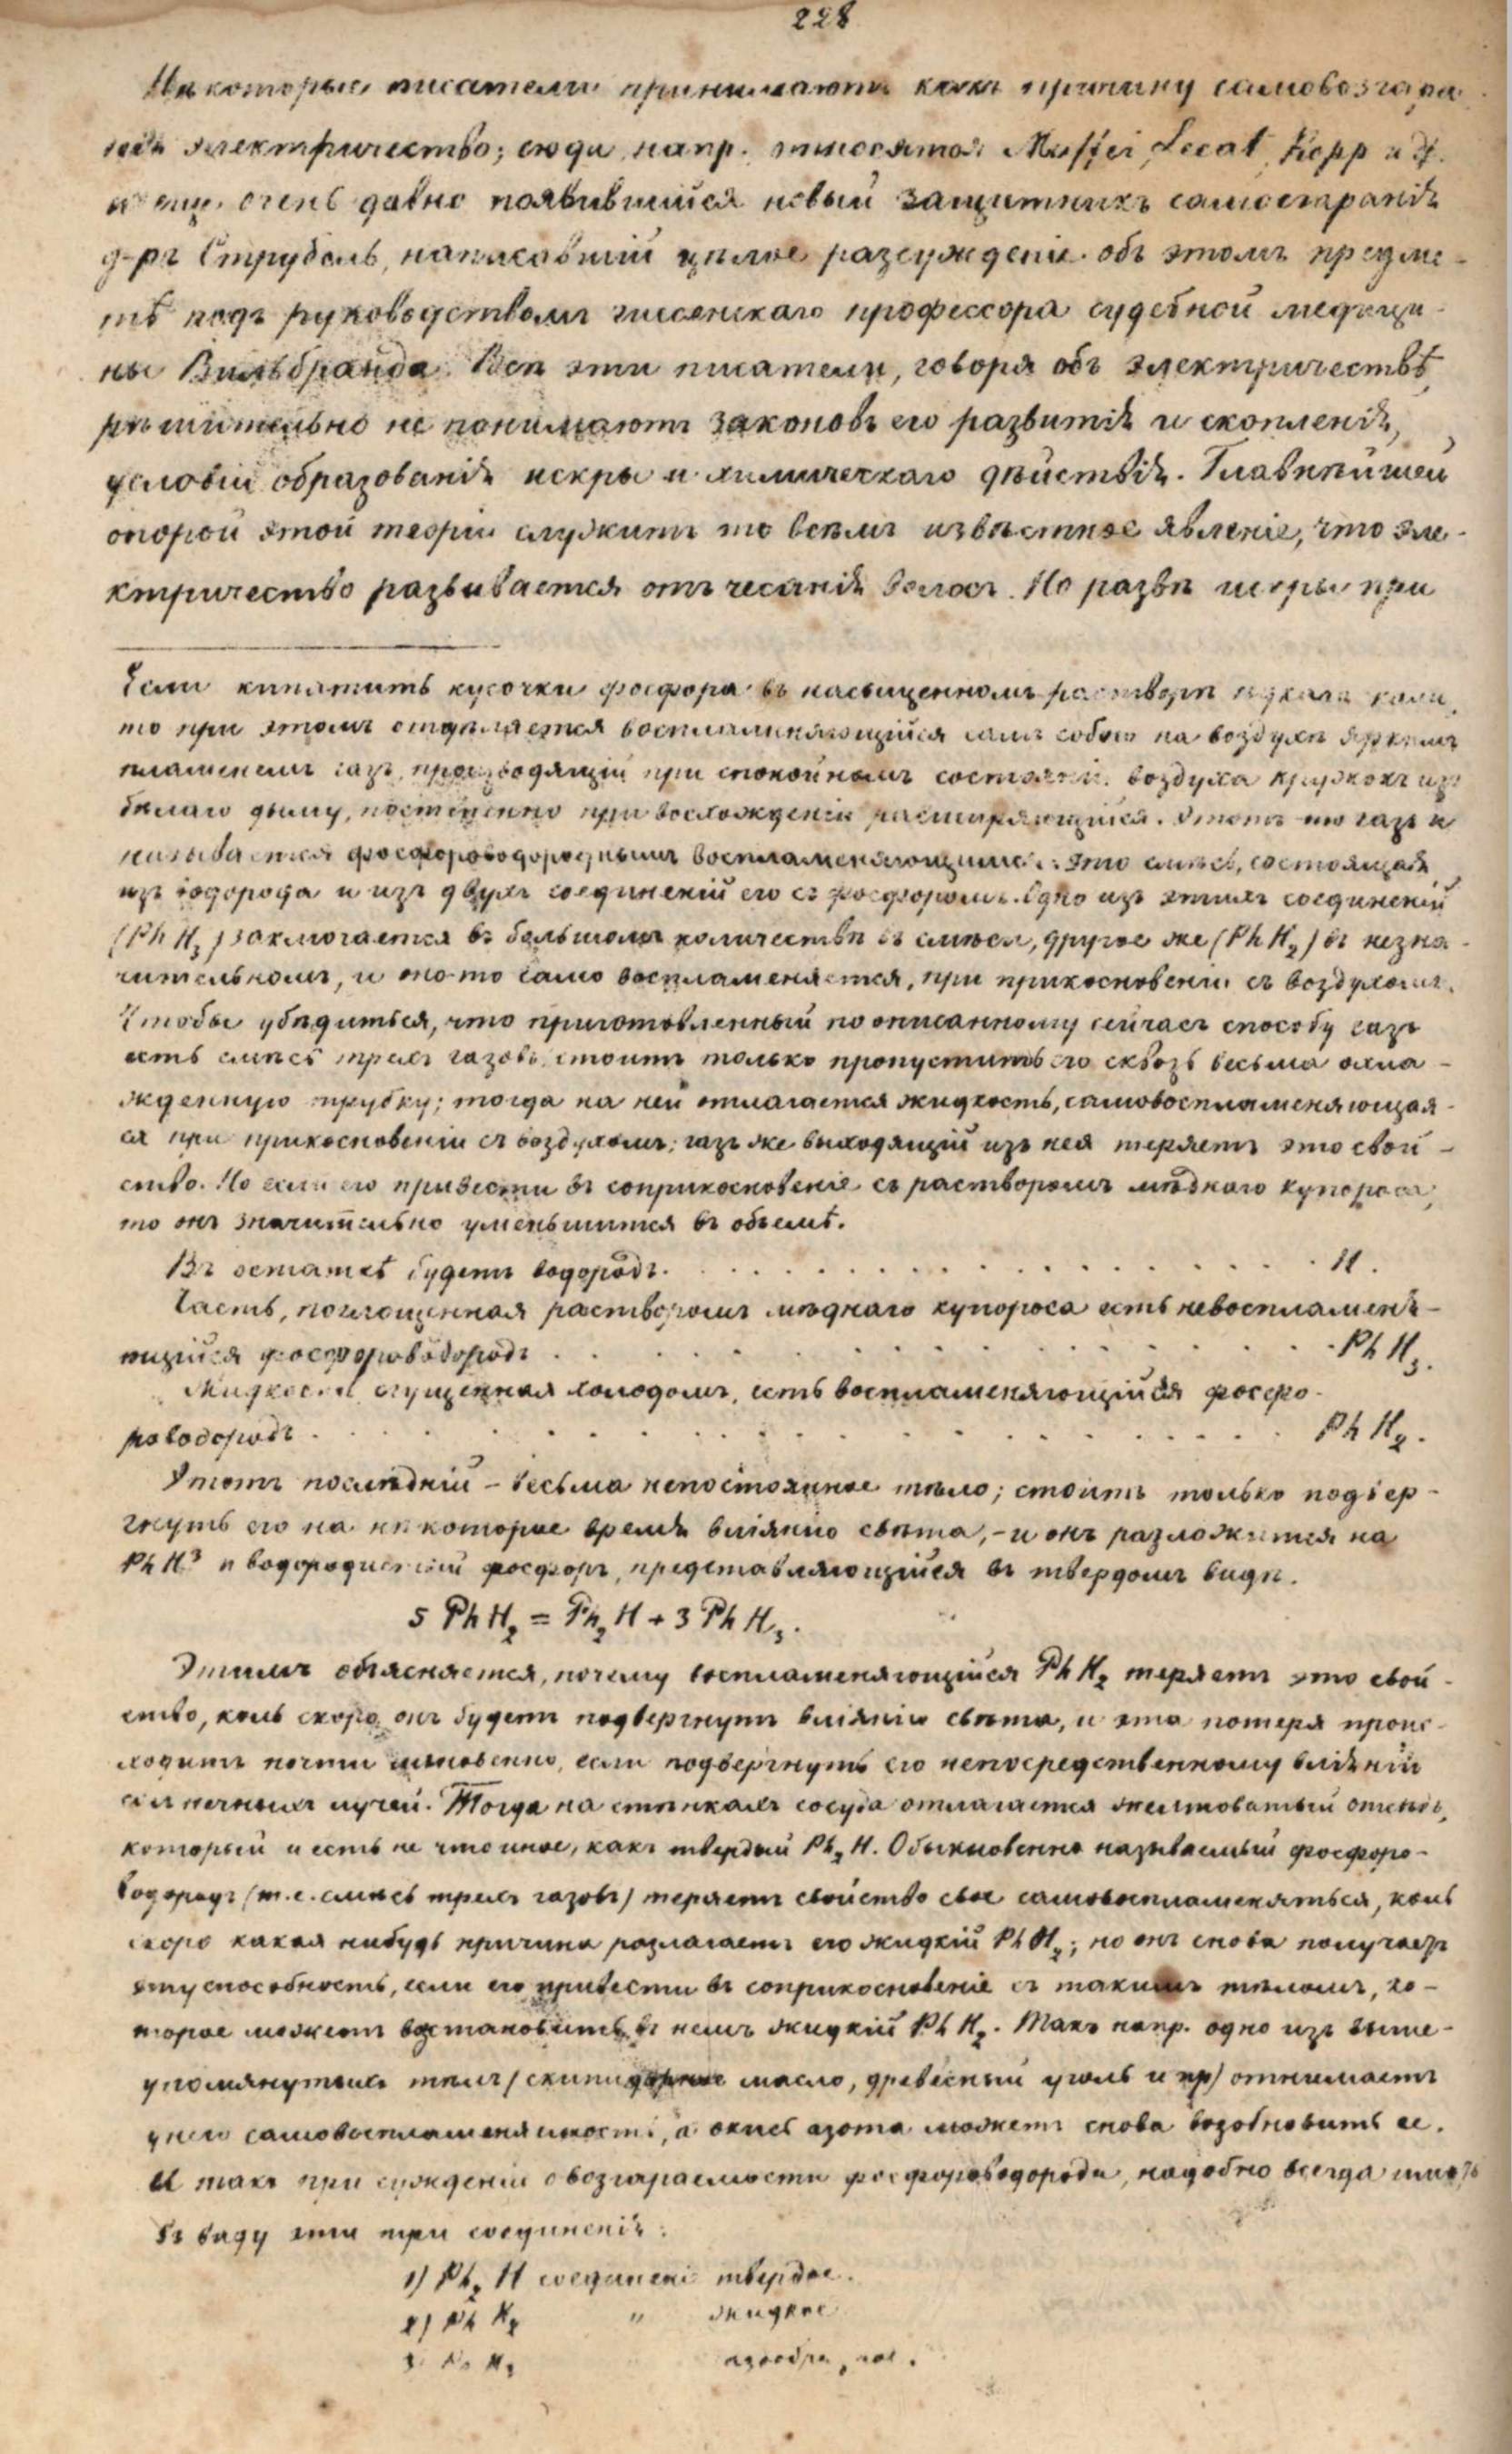 228
Нѣкоторые писатели принимаютъ какъ причину самовозгара-
нія электричество; сюда напр. относятся Maffei, Lecat, Kopp и др.
и еще очень давно появившійся новый защитникъ самосгаранія
д-ръ Струбель, написавшій цѣлое разсужденіе объ этомъ предме-
тѣ подъ руководствомъ гисенскаго профессора судебной медици-
ны Вильбранда. Всѣ эти писатели, говоря объ электричествѣ,
рѣшительно не понимаютъ законовъ его развитія и скопленія,
условій образованія искры и химическаго дѣйствія. Главнѣйшей
опорой этой теоріи служитъ то всѣмъ извѣстное явленіе, что эле-
ктричество развивается отъ чесанія волосъ. Но развѣ искры при
Если кипятить кусочки фосфора въ насыщенномъ растворѣ ѣдкаго кали,
то при этомъ отдѣляется воспламеняющійся самъ собою на воздухѣ яркимъ
пламенемъ газъ, производящій при спокойномъ состояніи воздуха кружокъ изъ
бѣлаго дыму, постепенно при восхожденіи расширяющійся. Этотъ то газъ и
называется фосфороводороднымъ воспламеняющимся: это смѣсь, состоящая
изъ водорода и изъ двухъ соединеній его съ фосфоромъ. Одно изъ этихъ соединеній
(Ph H₃) заключается въ большомъ количествѣ въ смѣси, другое же (Ph H₂) въ незна-
чительномъ, и оно-то само воспламеняется, при прикосновеніи съ воздухомъ.
Чтобы убѣдиться, что приготовленный по описанному сейчасъ способу газъ
есть смѣсь трехъ газовъ, стоитъ только пропустить его сквозь весьма охла-
жденную трубку; тогда на ней отлагается жидкость, самовоспламеняющая-
ся при прикосновеніи съ воздухомъ; газъ же выходящій изъ нея теряетъ это свой-
ство. Но если его привести въ соприкосновеніе съ растворомъ мѣднаго купороса,
то онъ значительно уменьшится въ объемѣ.
Въ остаткѣ будетъ водородъ. . . . . . . . . . . . . H.
Часть, поглощенная растворомъ мѣднаго купороса есть невоспламеня-
ющійся фосфороводородъ . . . . . . . . . . . . . Ph H₃.
Жидкость сгущенная холодомъ, есть воспламеняющійся фосфо-
роводородъ . . . . . . . . . . . . . Ph H₂.
Этотъ послѣдній - весьма непостоянное тѣло; стоитъ только подвер-
гнуть его на нѣкоторое время вліянію свѣта, - и онъ разложится на
Ph H³ и водородистый фосфоръ, представляющійся въ твердомъ видѣ.
5 Ph H₂ = Ph₂ H + 3 Ph H₃.
Этимъ объясняется, почему воспламеняющійся Ph H₂ теряетъ это свой-
ство, коль скоро онъ будетъ подвергнутъ вліянію свѣта, и эта потеря проис-
ходитъ почти мгновенно, если подвергнуть его непосредственному вліянію
солнечныхъ лучей. Тогда на стѣнкахъ сосуда отлагается желтоватый
который и есть не что иное, какъ твердый Ph₂ H. Обыкновенно называемый фосфоро-
водородъ (т. е. смѣсь трехъ газовъ) теряетъ свойство свое самовоспламеняться, коль
скоро какая нибудь причина разлагаетъ его жидкій Ph H₂; но онъ снова получаетъ
эту способность, если его привести въ соприкосновеніе съ такимъ тѣломъ, ко-
торое можетъ возстановить въ немъ жидкій Ph H₂. Такъ напр. одно изъ выше-
упомянутыхъ тѣлъ (скипидарное масло, древесный уголь и пр) отнимаетъ
у него самовоспламеняемость, а окись азота можетъ снова возобновить ее.
И такъ при сужденіи о возгараемости фосфороводорода, надобно всегда имѣть
въ виду эти три соединенія:
1) Ph₂ H соединеніе твердое.
2) Ph H₂ " жидкое
3) Ph H₃ газообразное.